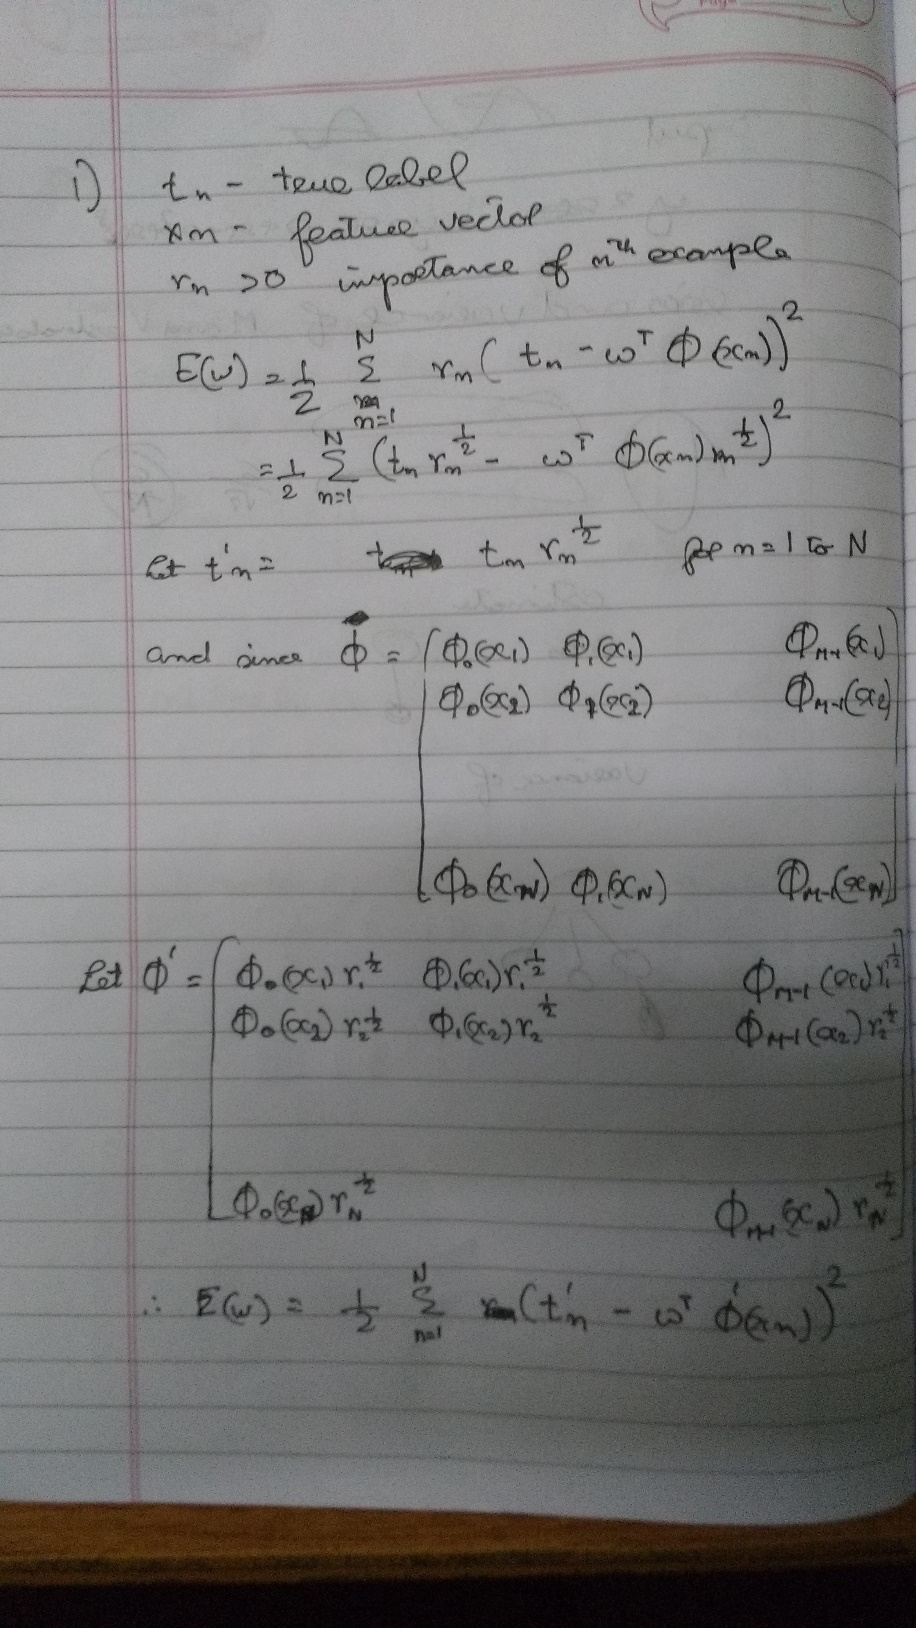 1) tₙ - true label
xₙ - feature vector
rₙ >0 importance of nᵗʰ example
E(w) = 1/2 Σₙ₌₁ᴺ rₙ( tₙ - ωᵀ Φ(xₙ))²
= 1/2 Σₙ₌₁ᴺ (tₙ rₙ^½ - ωᵀ Φ(xₙ) rₙ^½)²
let t'ₙ = tₙ rₙ^½ for n = 1 to N
and since Φ = [Φ₀(x₁) Φ₁(x₁) Φ_M-1(x₁)
Φ₀(x₂) Φ₁(x₂) Φ_M-1(x₂)
Φ₀(x_N) Φ₁(x_N) Φ_M-1(x_N)]
Let Φ' = [Φ₀(x₁) r₁^½ Φ₁(x₁) r₁^½ Φ_M-1(x₁) r₁^½
Φ₀(x₂) r₂^½ Φ₁(x₂) r₂^½ Φ_M-1(x₂) r₂^½
Φ₀(x_N) r_N^½ Φ_M-1(x_N) r_N^½]
∴ E(w) = 1/2 Σₙ₌₁ᴺ (t'ₙ - ωᵀ Φ'(xₙ))²